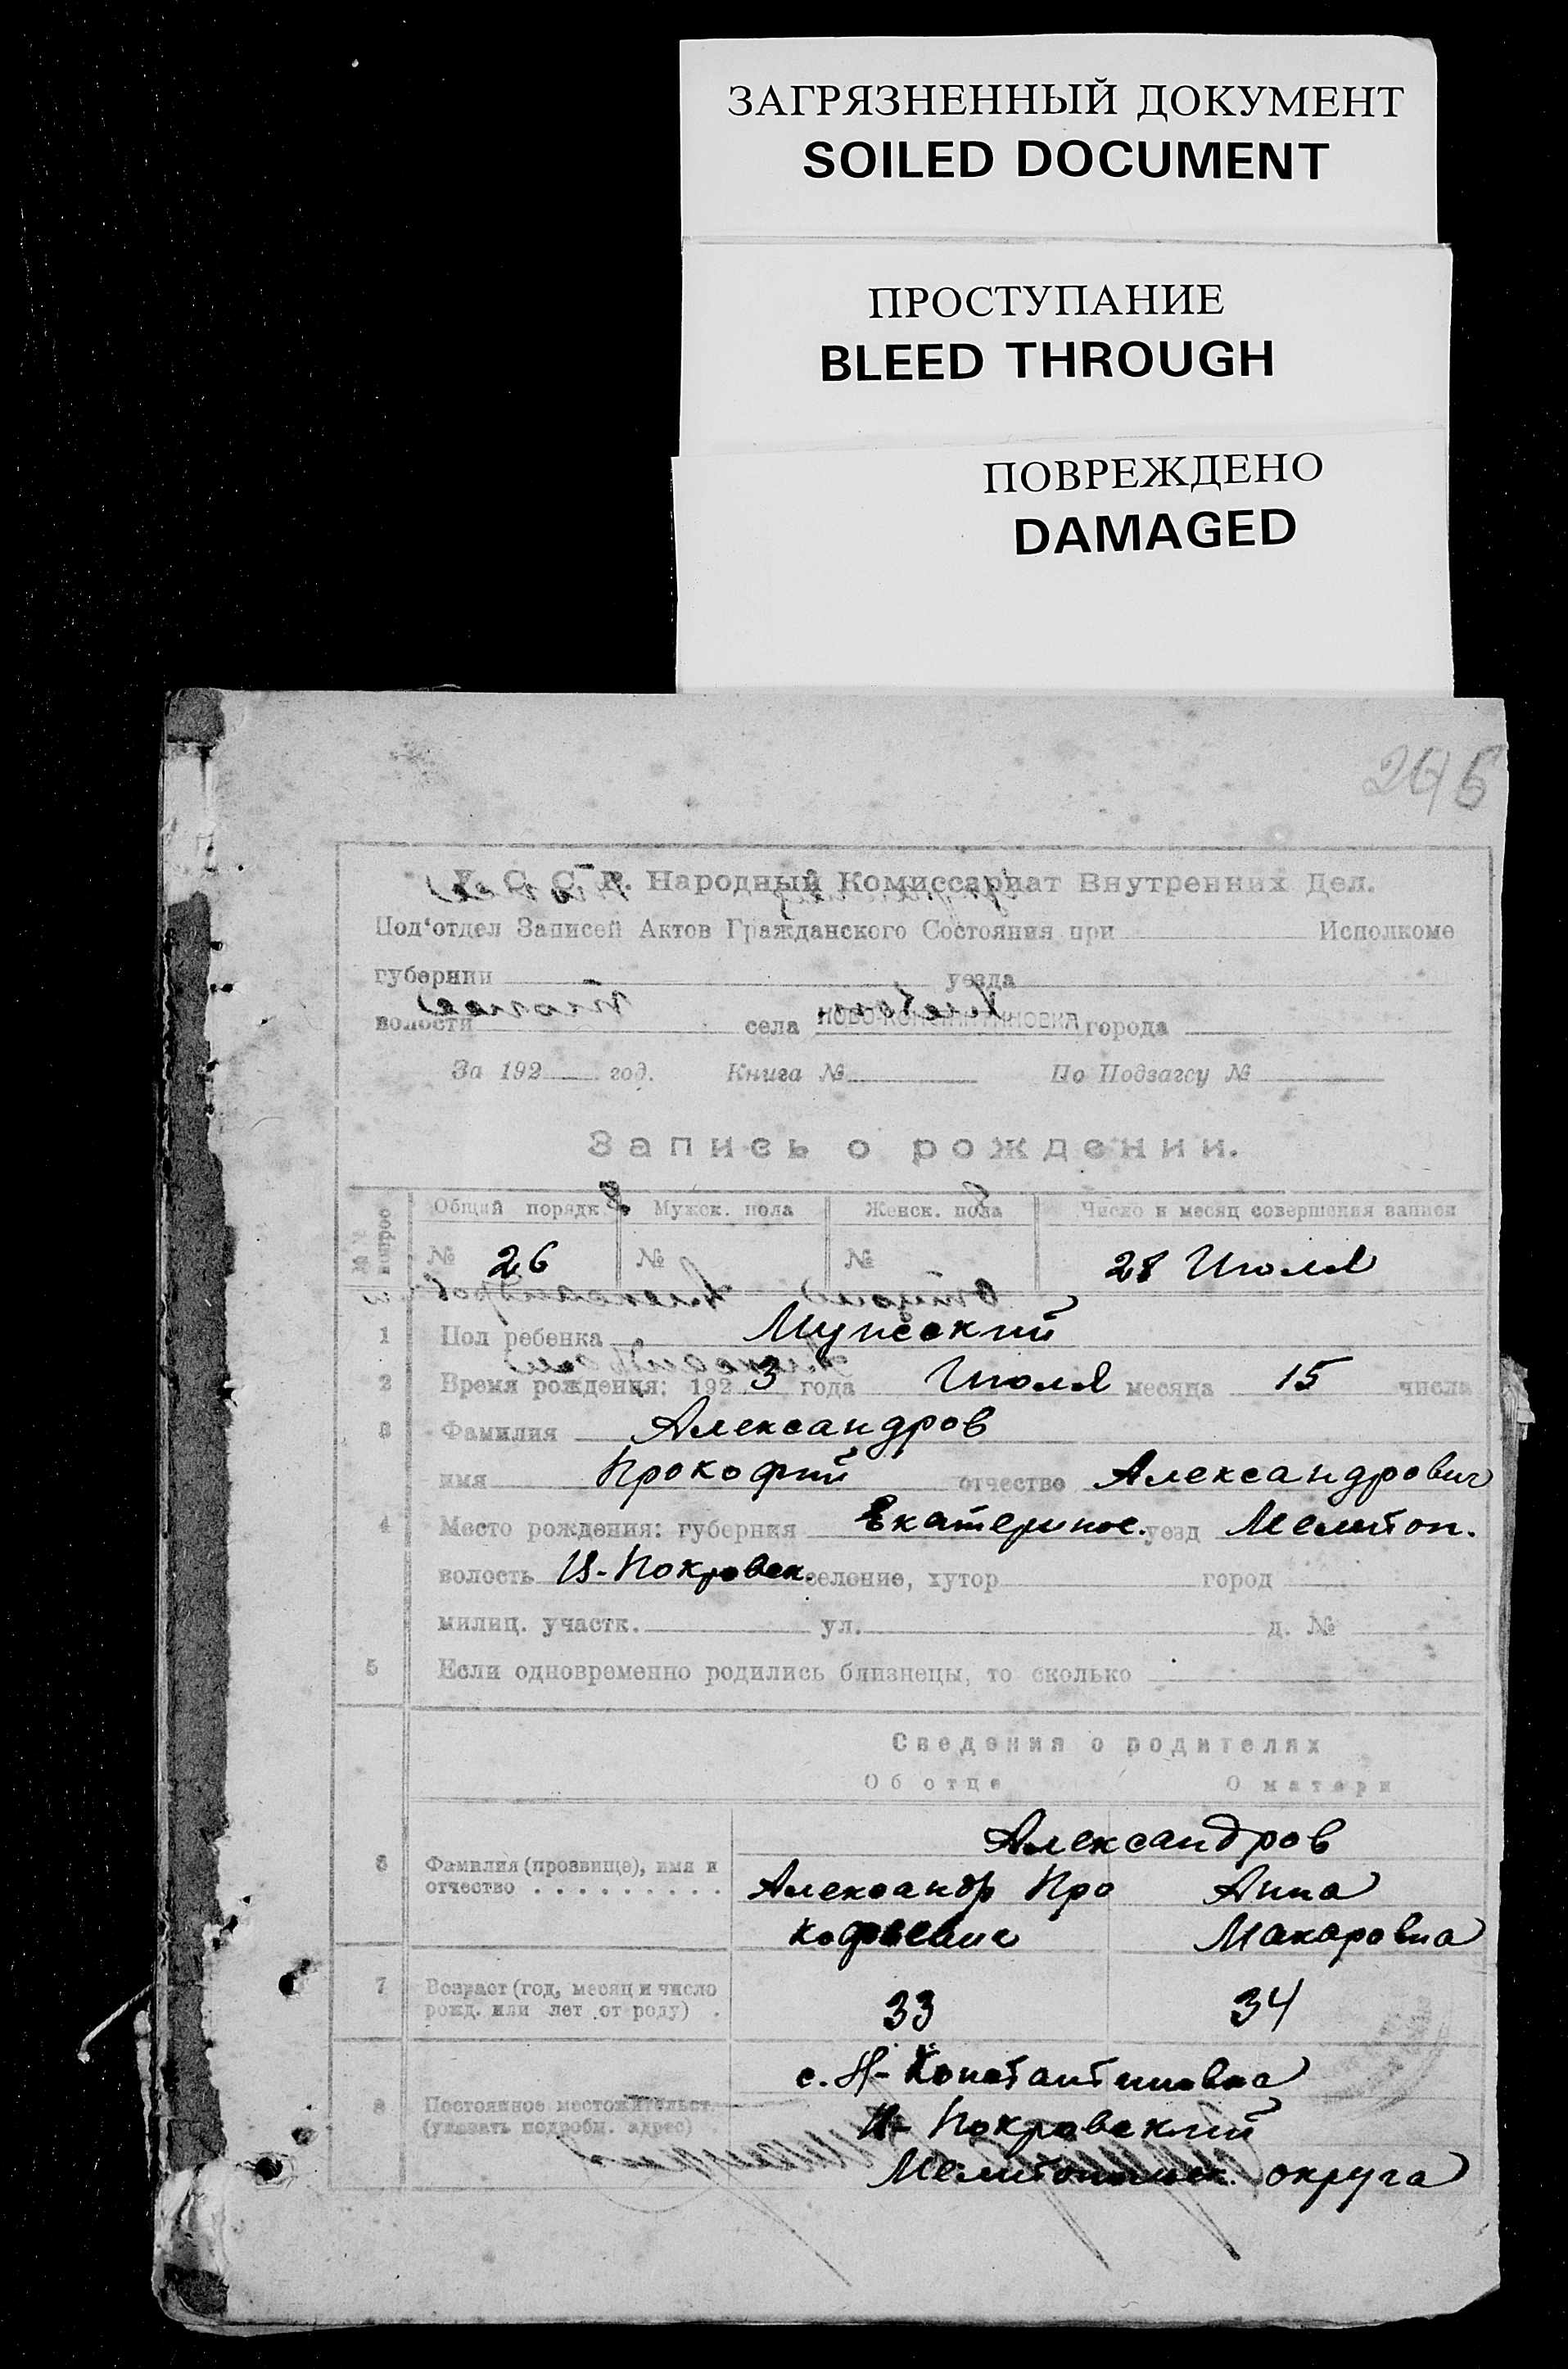 ЗАГРЯЗНЕННЫЙ ДОКУМЕНТ
SOILED DOCUMENT
ПРОСТУПАНИЕ
BLEED THROUGH
ПОВРЕЖДЕНО
DAMAGED
246
У. С. С. Р. Народный Комиссариат Внутренних Дел.
Под‘отдел Записей Актов Гражданского Состояния при Исполкоме
губернии уезда
волости села НОВО-КОНСТАНТИНОВКА города
За 192 год. Книга № По Подзагсу №
Запись о рождении.
Общий порядк. Мужск. пола Женск. пола Число и месяц совершения записи
№ 26 № № 28 Июля
1 Пол ребенка Мужской
2 Время рождения: 1923 года Июля месяца 15 числа
3 Фамилия Александров
имя Прокофий отчество Александрович
4 Место рождения: губерния Екатеринос. уезд Мелитоп.
волость Н-Покровск. селение, хутор город
милиц. участк. ул. д. №
5 Если одновременно родились близнецы, то сколько
Сведения о родителях
Об отце О матери
Александров
6 Фамилия (прозвище), имя и
отчество . . . . . . . . .
Александр Про Анна
кофьевич Макаровна
7 Возраст (год, месяц и число
рожд. или лет от роду) .
33 34
с. Н-Константиновка
8 Постоянное местожительст.
(указать подробн. адрес) .
Н-Покровский
Мелитопольск. округа